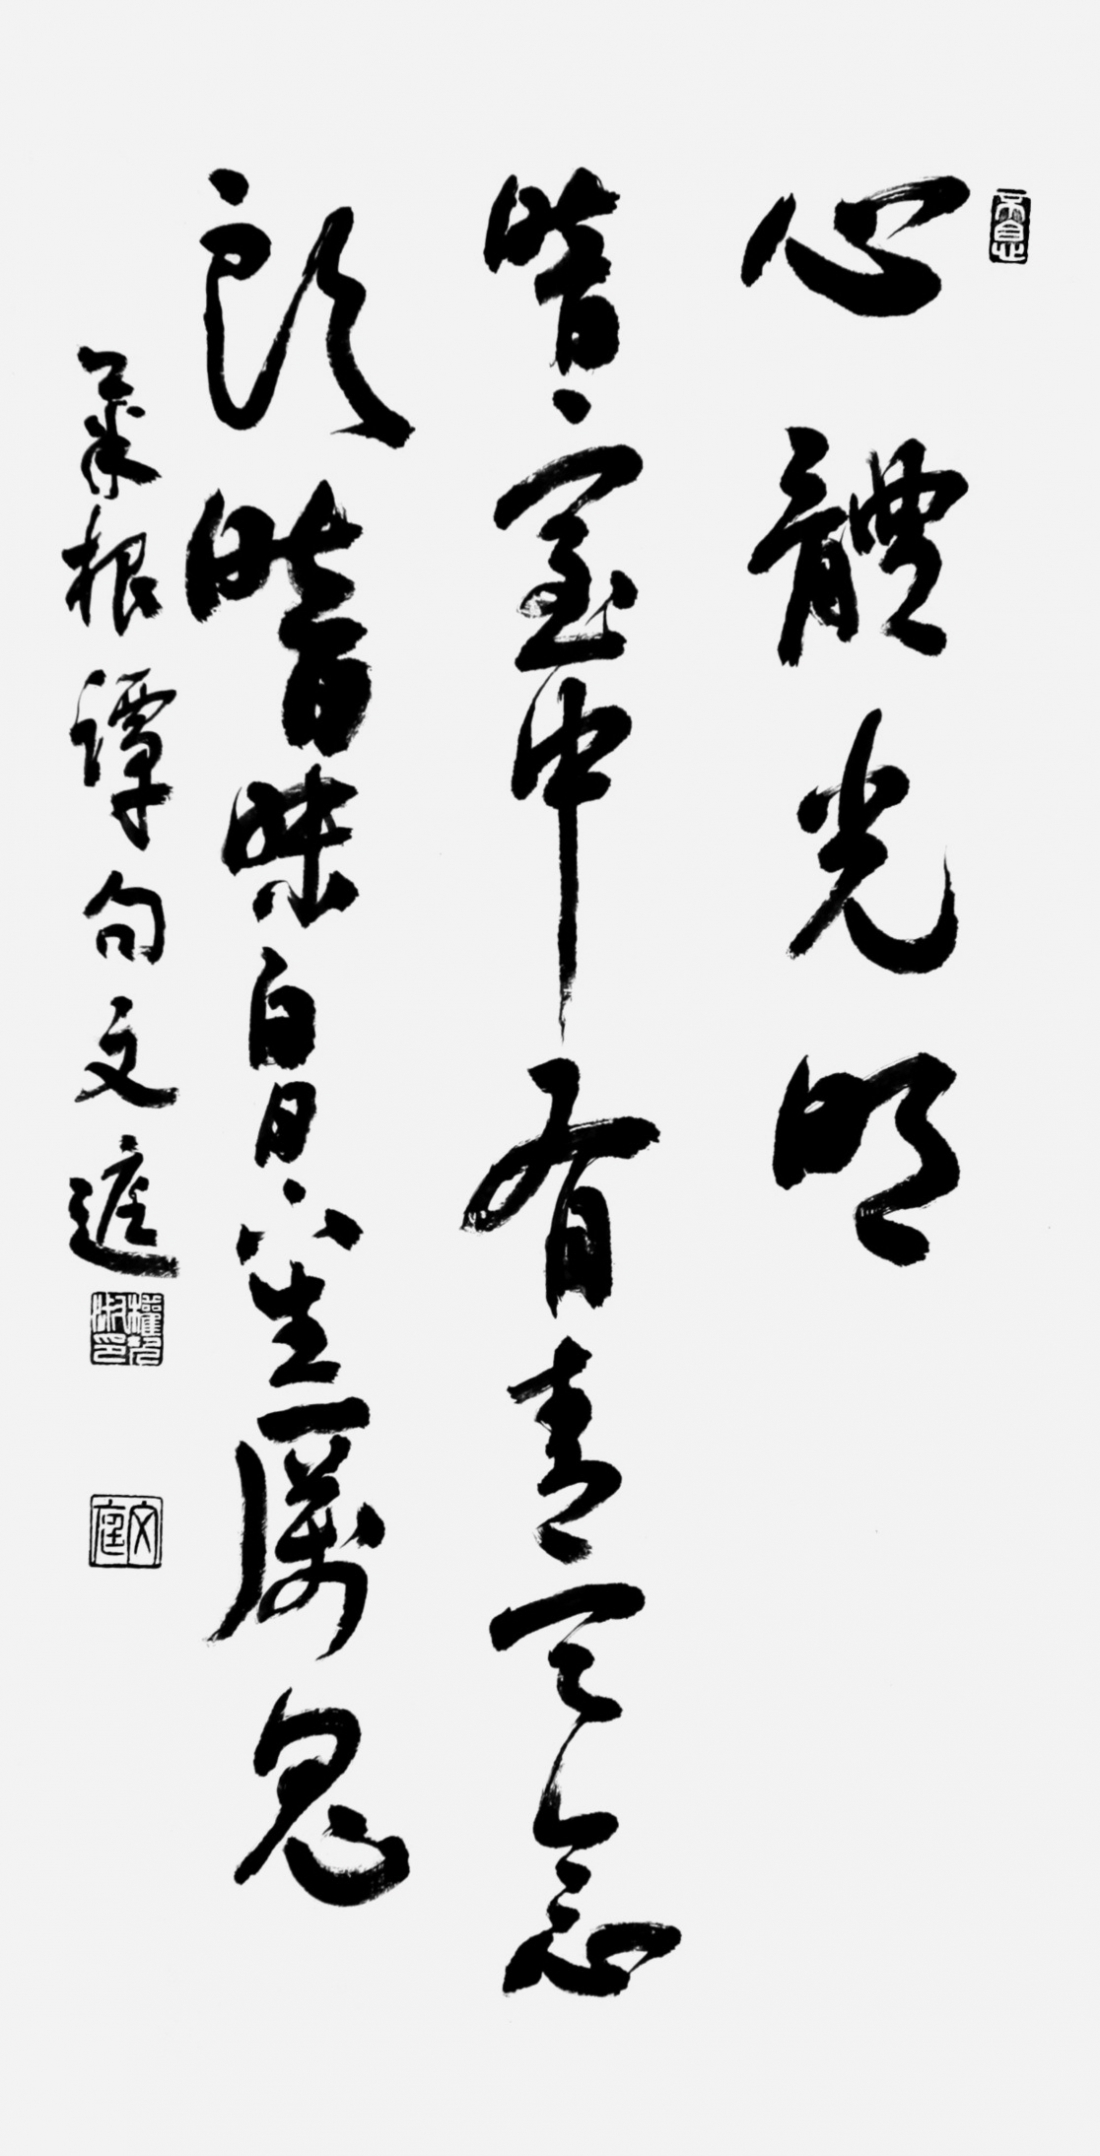 不息
心體光明
暗室中有青天念
頭暗昧白日下生厲鬼
菜根譚句文庭
文庭